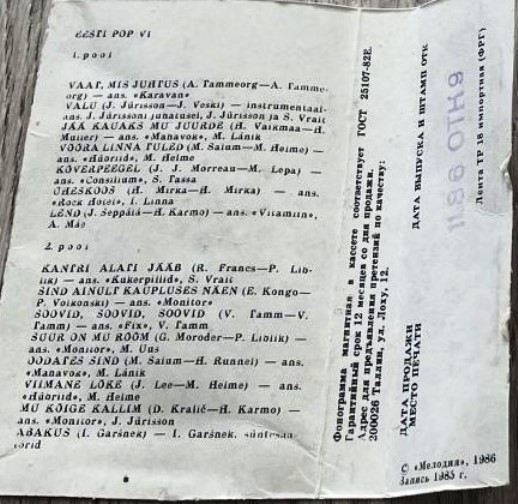 EESTI POP VI
1. pool
VAAT, MIS JUHTUS (A. Tammeorg—A. Tamme-
org) — ans. «Karavan»
VALU (J. Jürisson—J. Voski) — instrumentaal-
ans. J. Jürissoni juhatusel, J. Jürisson ja S. Vrait
JÄÄ KAUAKS MU JUURDE (H. Vaikmaa—H.
Muller) — ans. «Manavok», M. Länik
VÕÕRA LINNA TULED (M. Saium—M. Heime) —
ans. «Hüoriid», M. Heime
KÕVERPEEGEL (J. J. Morreau—M. Lepa) —
ans. «Consilium», S. Tassa
ÜHESKOOS (H. Mirka—H. Mirka) — ans.
«Rock Hotel», I. Linna
LEND (J. Seppälä—H. Karmo) — ans. «Vitamiin»,
A. Mäe
2. pool
KANTRI ALATI JÄÄB (R. Francs—P. Lib-
lik) — ans. «Kukerpillid», S. Vrait
SIND AINULT KAUPLUSES NÄEN (E. Kongo—
P. Volkonski) — ans. «Monitor»
SOOVID, SOOVID, SOOVID (V. Tamm—V.
Tamm) — ans. «Fix», V. Tamm
SUUR ON MU RÕÕM (G. Moroder—P. Liblik) —
ans. «Monitor», M. Uus
OODATES SIND (M. Saium—H. Runnel) — ans.
«Manavok», M. Länik
VIIMANE LÕKE (J. Lee—M. Heime) — ans.
«Hüoriid», M. Heime
MU KÕIGE KALLIM (D. Kralič—H. Karmo) —
ans. «Monitor», J. Jürisson
ABAKUS (I. Garšnek) — I. Garšnek, süntesaa-
torid
Фонограмма магнитная в кассете соответствует ГОСТ 25107-82Е.
Гарантийный срок 12 месяцев со дня продажи.
Адрес для предъявления претензий по качеству:
200026 Таллин, ул. Лоху, 12.
ДАТА ПРОДАЖИ
МЕСТО ПЕЧАТИ
ДАТА ВЫПУСКА И ШТАМП ОТК
Лента ТР 18 импортная (ФРГ)
© «Мелодия», 1986
Запись 1985 г.